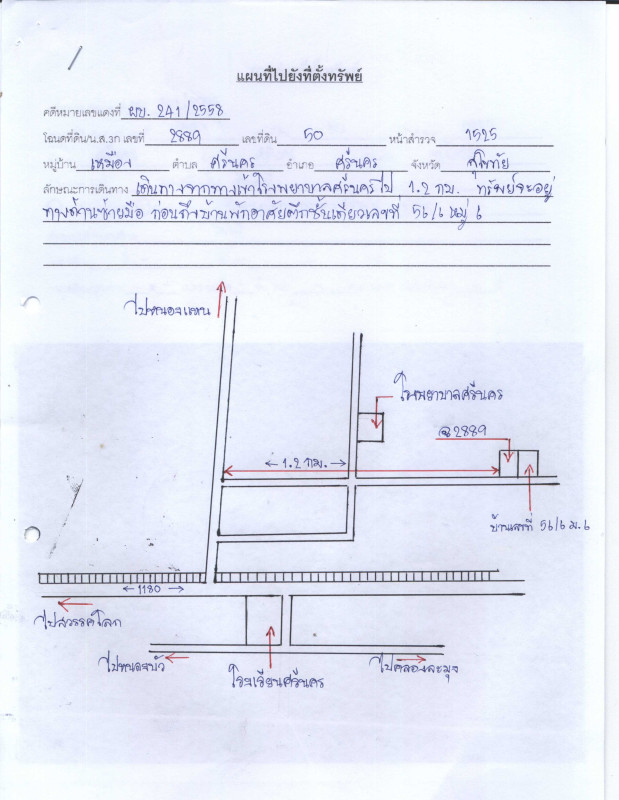 แผนที่ไปยังที่ตั้งทรัพย์
คดีหมายเลขแดงที่ ผบ. 241/2558
โฉนดที่ดิน/น.ส.3ก เลขที่ 2889 เลขที่ดิน 50 หน้าสำรวจ 1525
หมู่บ้าน เหมือง ตำบล ศรีนคร อำเภอ ศรีนคร จังหวัด สุโขทัย
ลักษณะการเดินทาง เดินทางจากทางเข้าโรงพยาบาลศรีนครไป 1.2 กม. ทรัพย์จะอยู่
ทางด้านซ้ายมือ ก่อนถึงบ้านพักอาศัยตึกชั้นเดียวเลขที่ 56/6 หมู่ 6
ไปหนองแหน
โรงพยาบาลศรีนคร
ฉ 2889
1.2 กม.
บ้านเลขที่ 56/6 ม.6
1180
ไปสวรรคโลก
ไปหนองบัว
โรงเรียนศรีนคร
ไปคลองละมุง